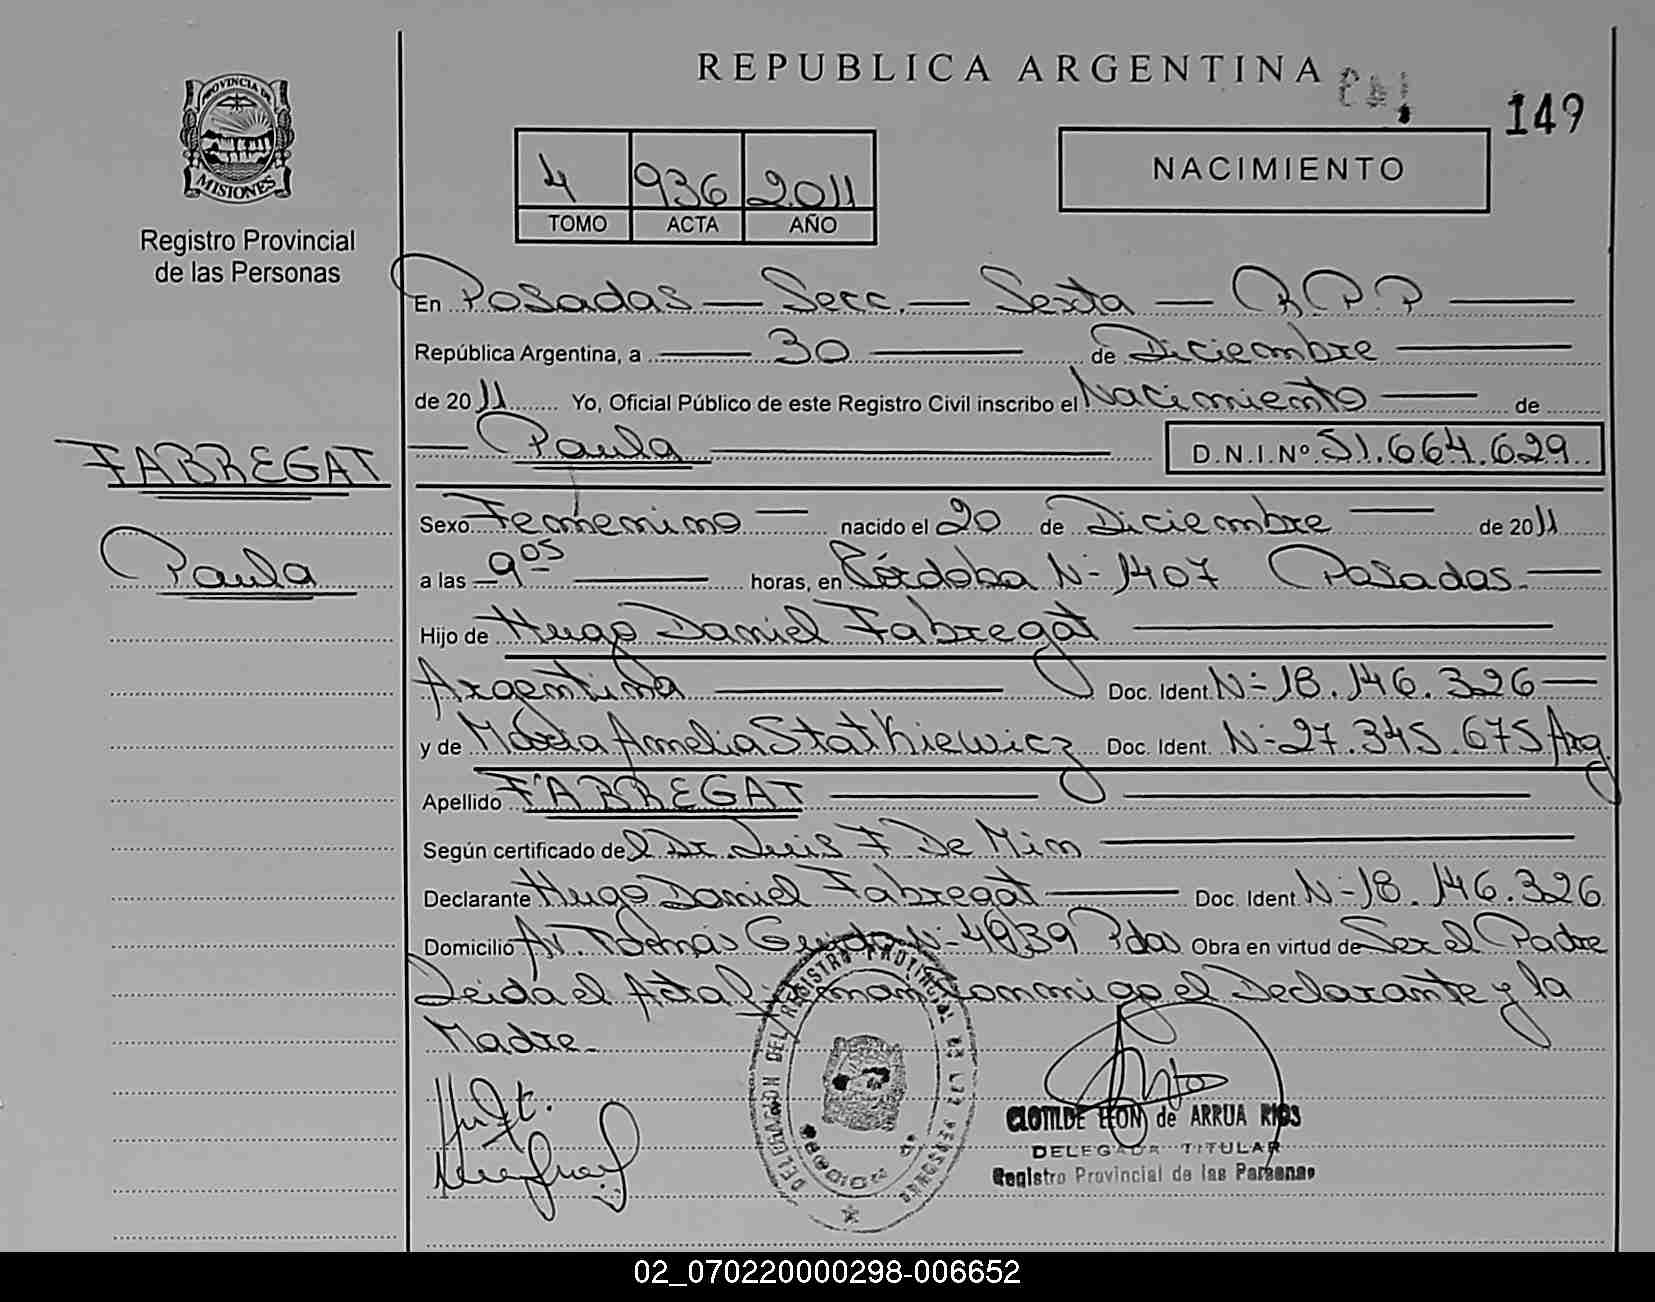 REPUBLICA ARGENTINA
149
PROVINCIA DE
MISIONES
Registro Provincial
de las Personas
NACIMIENTO
4 936 2011
TOMO ACTA AÑO
En Posadas — Secc. — Sexta — R P P
República Argentina, a 30 de Diciembre
de 2011 Yo, Oficial Público de este Registro Civil inscribo el Nacimiento de
Paula D.N.I.Nº 51.664.629
FABREGAT
Paula
Sexo Femenino nacido el 20 de Diciembre de 2011
a las 9 05 horas, en Córdoba N- 1407 Posadas.
Hijo de Hugo Daniel Fabregat
Argentina Doc. Ident. N- 18.146.326
y de María Amelia Statkiewicz Doc. Ident. N- 27.345.675 Arg
Apellido FABREGAT
Según certificado del Dr. Luis F. De Mim
Declarante Hugo Daniel Fabregat Doc. Ident. N- 18.146.326
Domicilio Av. Tomás Guido N- 4939 Pdas Obra en virtud de Ser el Padre
Leida el Acta firman conmigo el Declarante y la
Madre.
DELEGACION DEL REGISTRO PROVINCIAL DE LAS PERSONAS
CLOTILDE LEON de ARRUA RIOS
DELEGADA TITULAR
Registro Provincial de las Personas
02_070220000298-006652